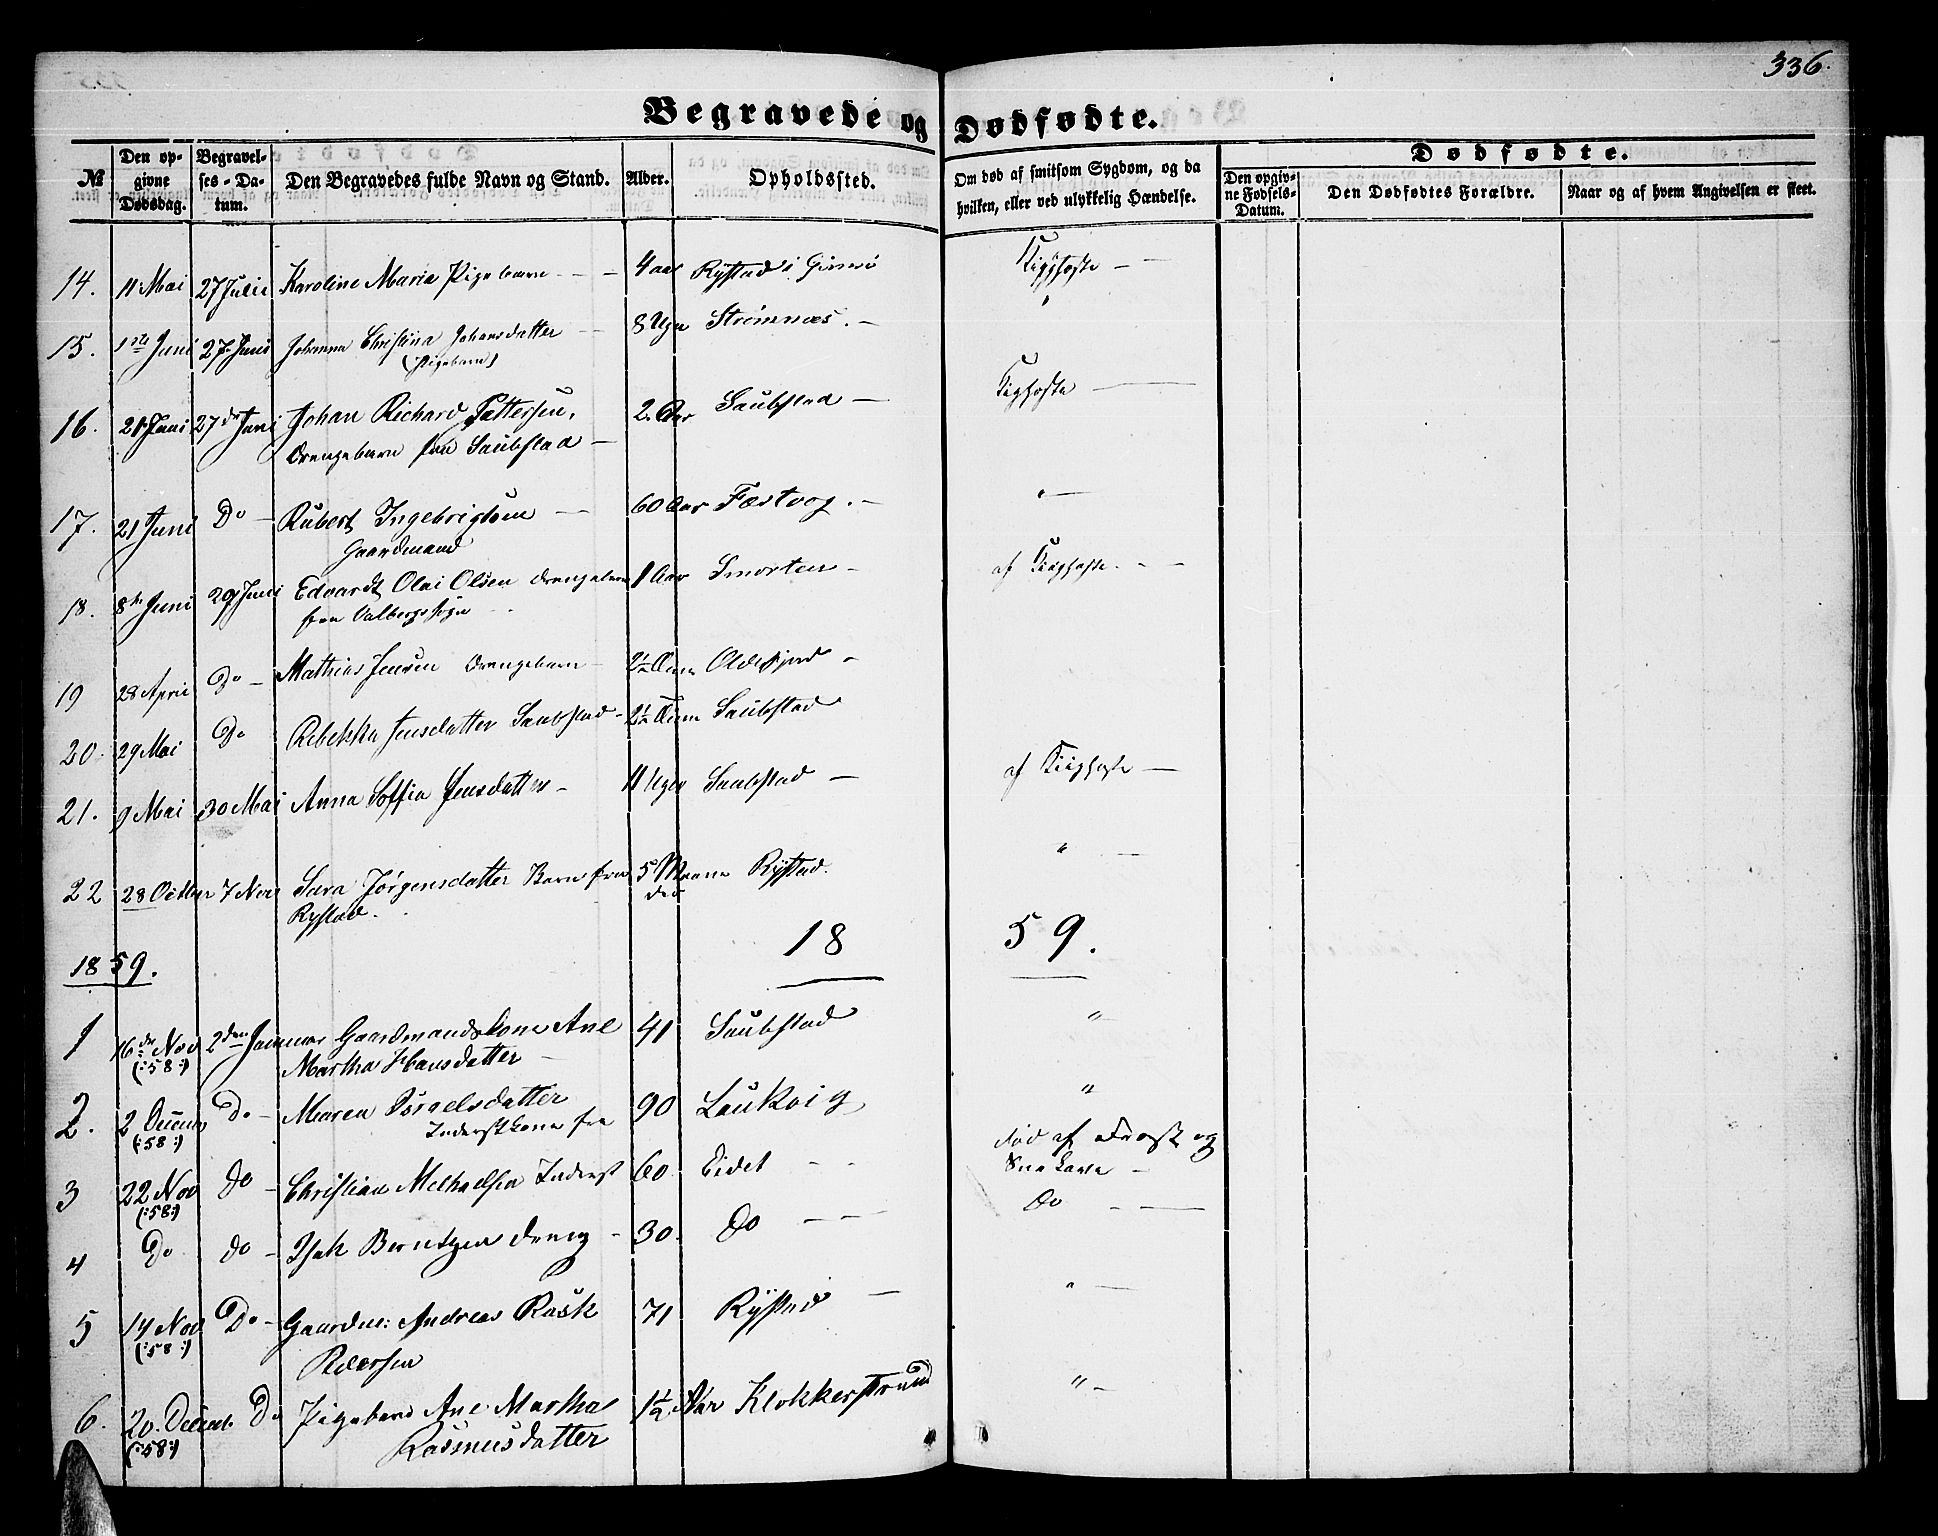 336.
Begravede og Dødfødte.
№
Den opgivne Dødsdag.
Begravelses-Datum.
Den Begravedes fulde Navn og Stand.
Alder.
Opholdssted.
Om død af smitsom Sygdom, og da hvilken, eller ved ulykkelig Hændelse.
Dødfødte.
Den opgivne Fødsels-Datum.
Den Dødfødtes Forældre.
Naar og af hvem Angivelsen er skeet.
14. 11 Mai 27 Julii Karoline Maria Pigebarn - - - 4 aar Rystad i Gimsö Kighoste - -
15. 1ste Juni 27 Juni Johanna Christina Johansdatter - 8 Uger Strömnæs. - "
(Pigebarn)
16. 21 Juni 27de Juni Johan Richard Pettersen, 2 Aar Saubstad - Kighoste -
Drengebarn fra Saubstad -
17. 21 Juni Do - Rubert Ingebrigtsen - 60 Aar Festvog. - " -
Gaardmand
18. 8de Juni 29 Juni Edvardt Olai Olsen Drengebarn 1 Aar Smorten - af Kighoste. - -
fra Valbergs Sogn
19 28 April Do - Mathias Jensen Drengebarn - 2½ -
20. 29 Mai Do Rebekka Jensdatter Saubstad - 2½ Saubstad
21. 9 Mai 30 Mai Anna Soffia Jensdatter - 11 Uger Saubstad - af Kighoste -
22 28 Octbr 7 Nov Sara Jörgensdatter Barn fra 5 Maane Rystad. " -
Rystad. der
1859. 18 59.
1 16de Nov 2den Januar Gaardmandskone Ane 41 Saubstad "
(:58:) Martha Hansdatter -
2. 2 Decem Do - Maren Israelsdatter 90 Laukvig "
(:58:) Inderstkone fra
3 22 Nov Do - Christian Michaelsen Inderst 60 Eidet - - död af Frost og
(:58:) Sne -
4 Do Do - Isak Berntzen Dreng - 30. Do - - Do - -
5 14 Nov Do - Gaardm: Andreas Rask 71 Rystad - " -
(:58:) Pedersen
6. 20. Decemb. Do Pigebarn Ane Martha 1½ Aar Klokkerstrand " -
(:58:) Rasmusdatter